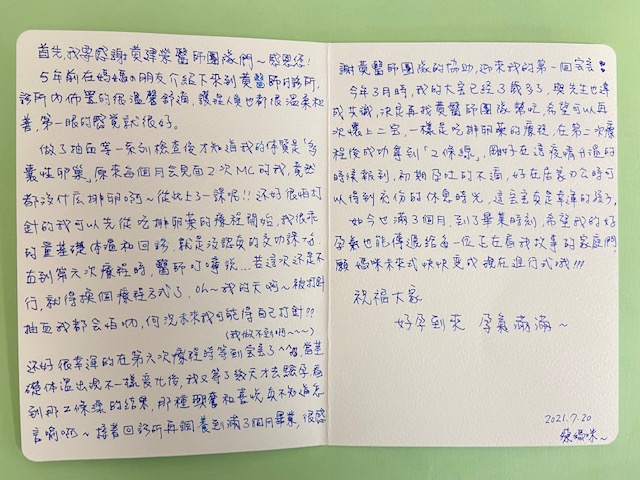 首先,我要感謝黃建榮醫師團隊們~感恩您!
5年前在媽媽的朋友介紹下來到黃醫師的診所,
診所內佈置的很溫馨舒適,護理人員也都很溫柔和
善,第一眼的感覺就很好。
做了抽血等一系列檢查後才知道我的体質是「多
囊性卵巢」原來每個月会見面2次MC的我,竟然
都沒什么排卵啊~從此上了一課呢!!還好很怕打
針的我可以先從吃排卵藥的療程開始,我很乖
的量基礎体溫和回診,就是沒認真的交功課
直到第六次療程時,醫師叮嚀說...若這次還是不
行,就得換個療程方式了,Oh~我的天啊~被打針
抽血我都会怕吶,何況未來我可能得自己打針??
(我做不到啊~~~)
還好很幸運的在第六次療程時等到宝宝了^^當基
礎体溫出現不一樣变化後,我又等了幾天才去驗孕看
到那2條線的結果,那種興奮和喜悅真不知道怎
言喻啊~接著回診所再調養到滿3個月畢業,很感
謝黃醫師團隊的協助,迎來我的第一個宝宝!
今年3月時,我的大宝已經3歲多了,與先生也達
成共識,決定再找黃醫師團隊幫忙,希望可以再
次懷上二宝,一樣是吃排卵藥的療程,在第二次療
程後成功等到「2條線」,剛好在這疫情升溫的
時候報到,初期孕吐的不適,好在居家办公時可
以得到充份的休息時光,這宝宝真是幸運的孩子,
如今也滿3個月,到了畢業時刻,希望我的好
孕氣也能傳遞給每一位正在看我故事的家庭們
願 媽咪未來式快快变成現在進行式哦!!!
祝福大家
好孕到來 孕氣滿滿~
2021.7.20
媽咪~